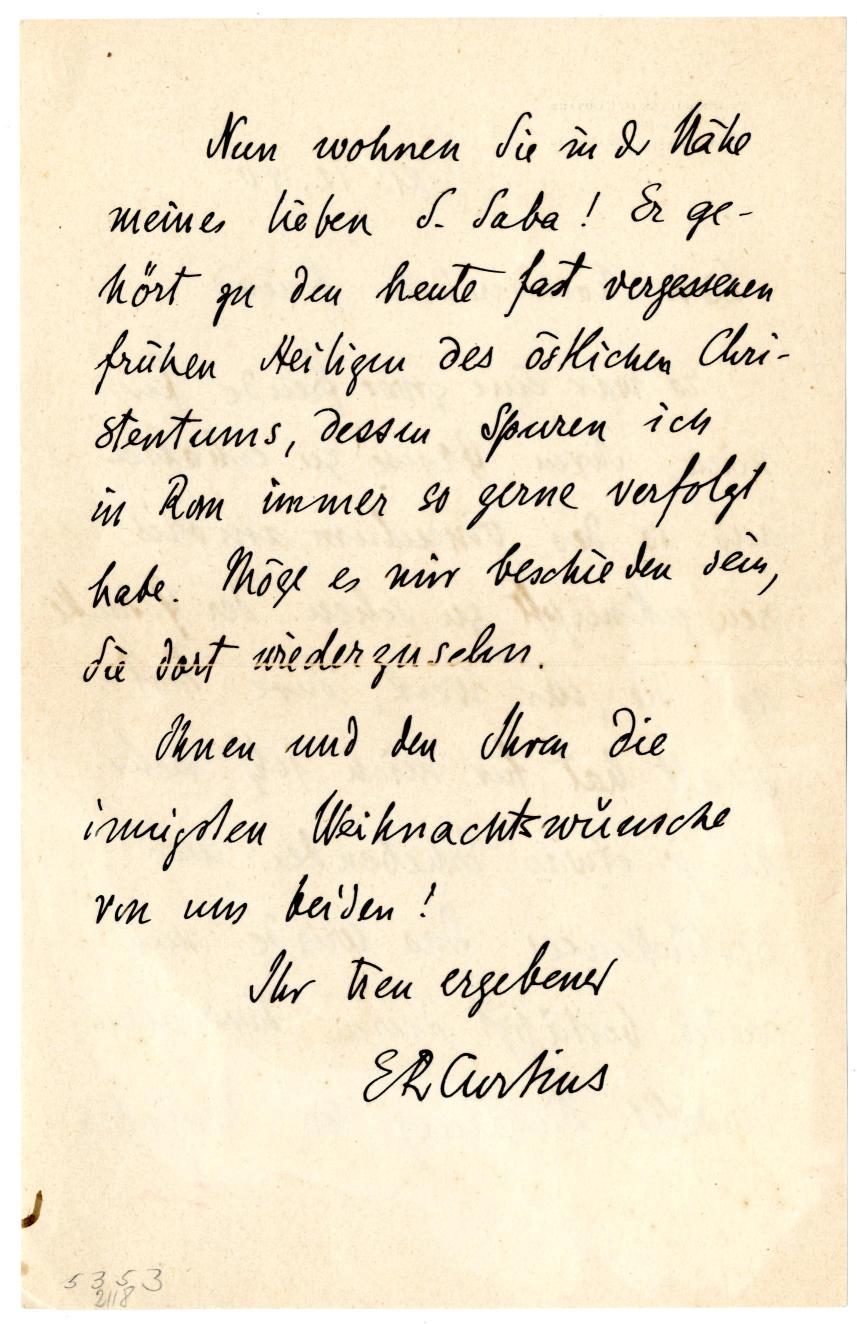 Nun wohnen Sie in der Nähe
meines lieben S. Saba! Er ge-
hört zu den heute fast vergessenen
frühen Heiligen des östlichen Chri-
stentums, dessen Spuren ich
in Rom immer so gerne verfolgt
habe. Möge es mir beschieden sein,
Sie dort wiederzusehn.
Ihnen und den Ihren die
innigsten Weihnachtswünsche
von uns beiden!
Ihr treu ergebener
ER Curtius
5353
2118